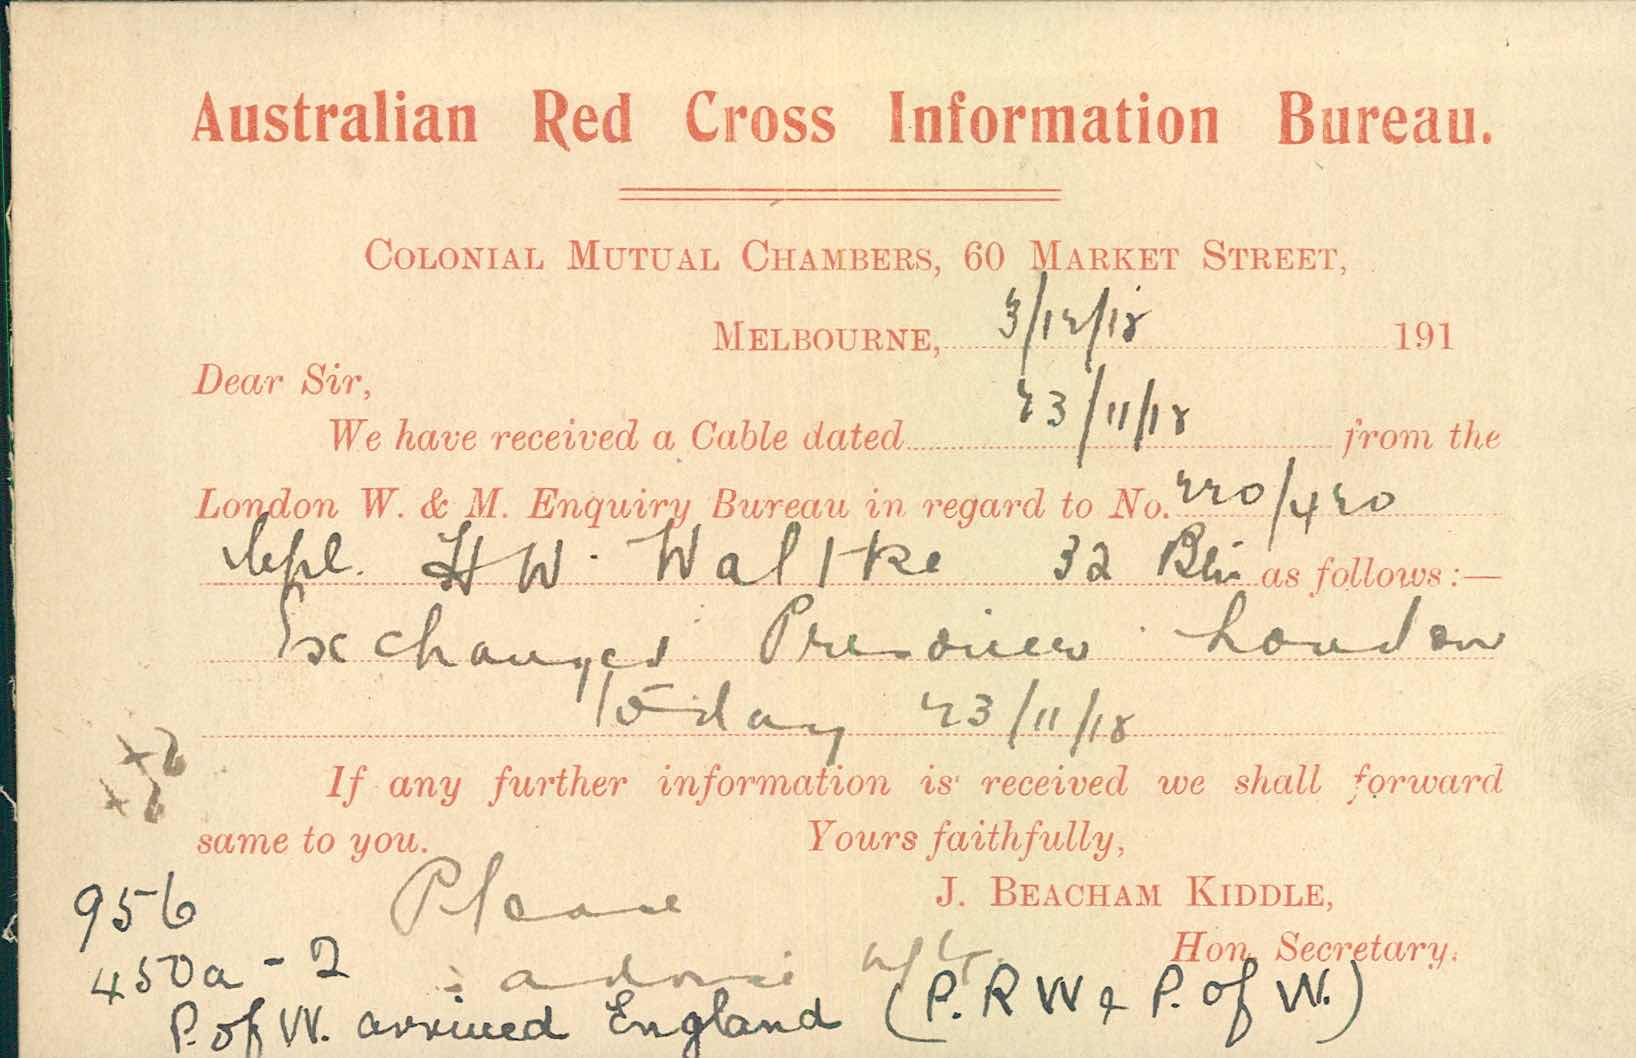 Australian Red Cross Information Bureau.
COLONIAL MUTUAL CHAMBERS, 60 MARKET STREET,
MELBOURNE, 3/12/18 191
Dear Sir,
We have received a Cable dated 23/11/18 from the
London W. & M. Enquiry Bureau in regard to No. 220/420
Cpl. H W. Waltke 32 Btn as follows:—
Exchanged Prisoner London
to-day 23/11/18
If any further information is received we shall forward
same to you. Yours faithfully,
J. BEACHAM KIDDLE,
Hon. Secretary.
956
Please
450a - 2
advise
P. of W. arrived England (P. R W & P. of W.)